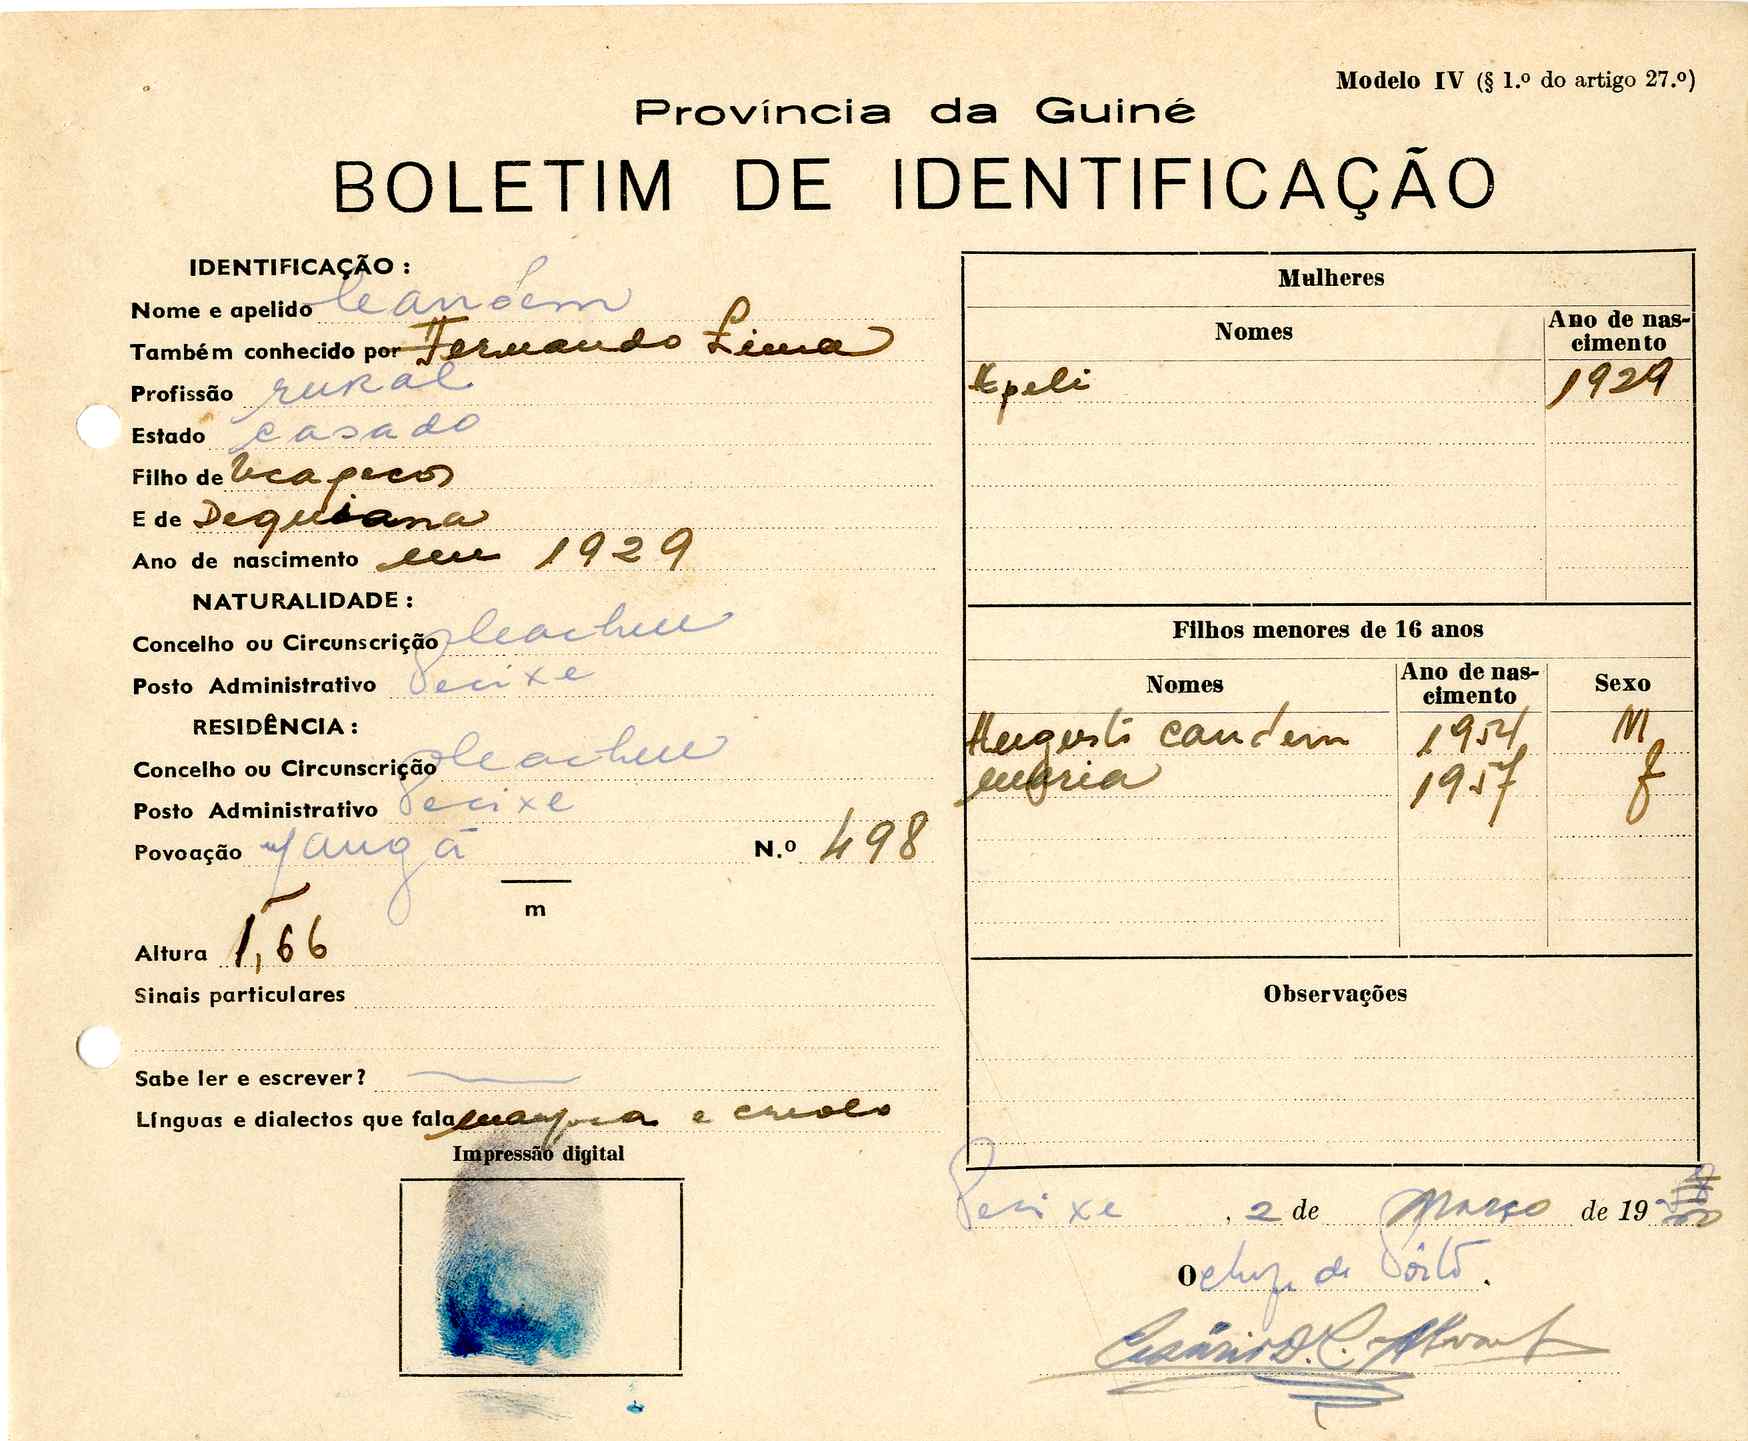 Modelo IV (§ 1.º do artigo 27.º)
Província da Guiné
BOLETIM DE IDENTIFICAÇÃO
IDENTIFICAÇÃO :
Nome e apelido
Também conhecido por Fernando Lima
Profissão rural
Estado casado
Filho de
E de Dequiana
Ano de nascimento em 1929
NATURALIDADE :
Concelho ou Circunscrição Cacheu
Posto Administrativo Pecixe
RESIDÊNCIA :
Concelho ou Circunscrição Cacheu
Posto Administrativo Pecixe
Povoação N.º 498
m
Altura 1,66
Sinais particulares
Sabe ler e escrever?
Línguas e dialectos que fala e creolo
Impressão digital
Mulheres
Nomes Ano de nas-
cimento
Apeli 1929
Filhos menores de 16 anos
Nomes Ano de nas-
cimento Sexo
Augusti 1954 M
Maria 1957 f
Observações
Pecixe, 2 de Março de 19
O chefe de Pôsto.